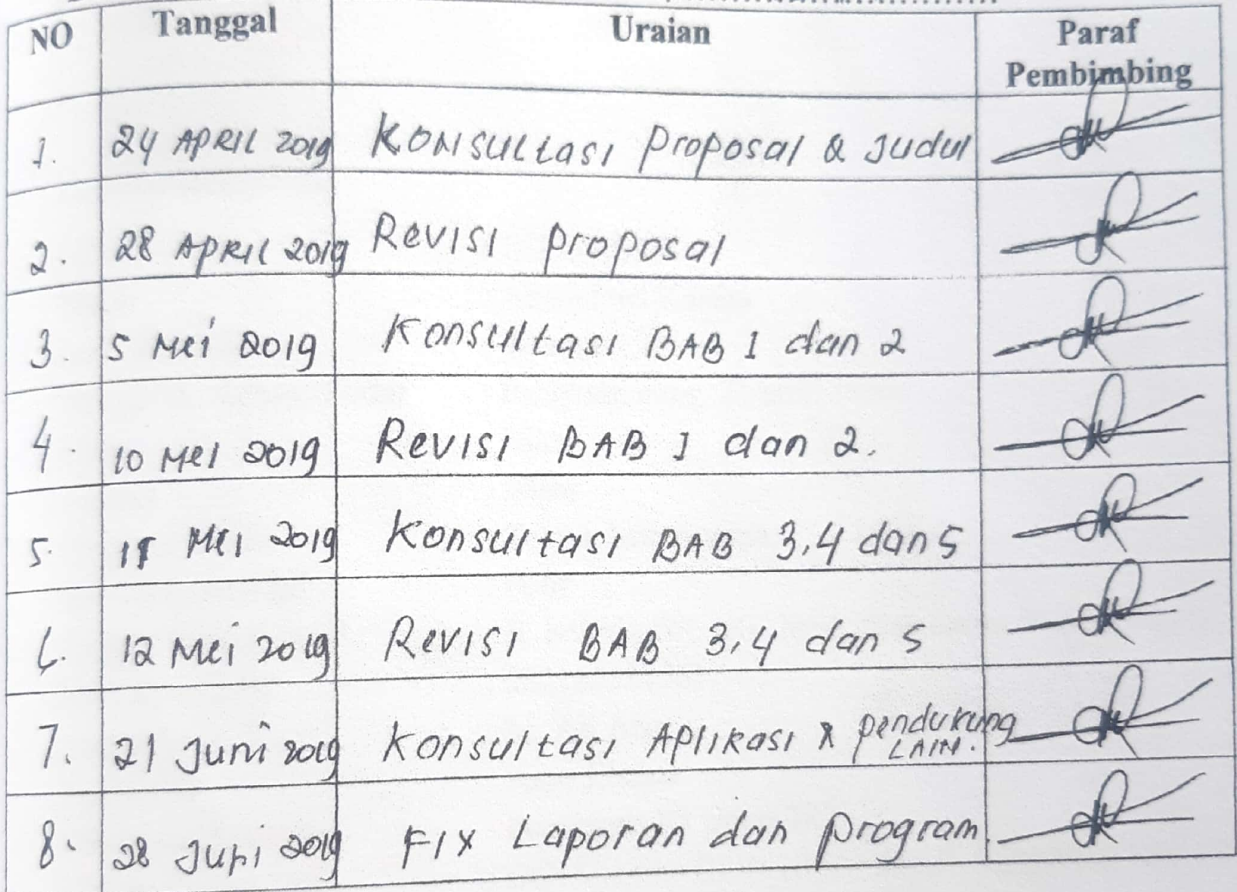 NO Tanggal Uraian Paraf
Pembimbing
1. 24 APRIL 2019 Konsultasi Proposal & Judul
2. 28 APRIL 2019 Revisi proposal
3. 5 Mei 2019 Konsultasi BAB 1 dan 2
4. 10 Mei 2019 Revisi BAB 1 dan 2.
5. Mei 2019 Konsultasi BAB 3,4 dan 5
6. 12 Mei 2019 Revisi BAB 3,4 dan 5
7. 21 Juni 2019 Konsultasi Aplikasi & pendukung
LAIN.
8. 28 Juni 2019 FIX Laporan dan program.